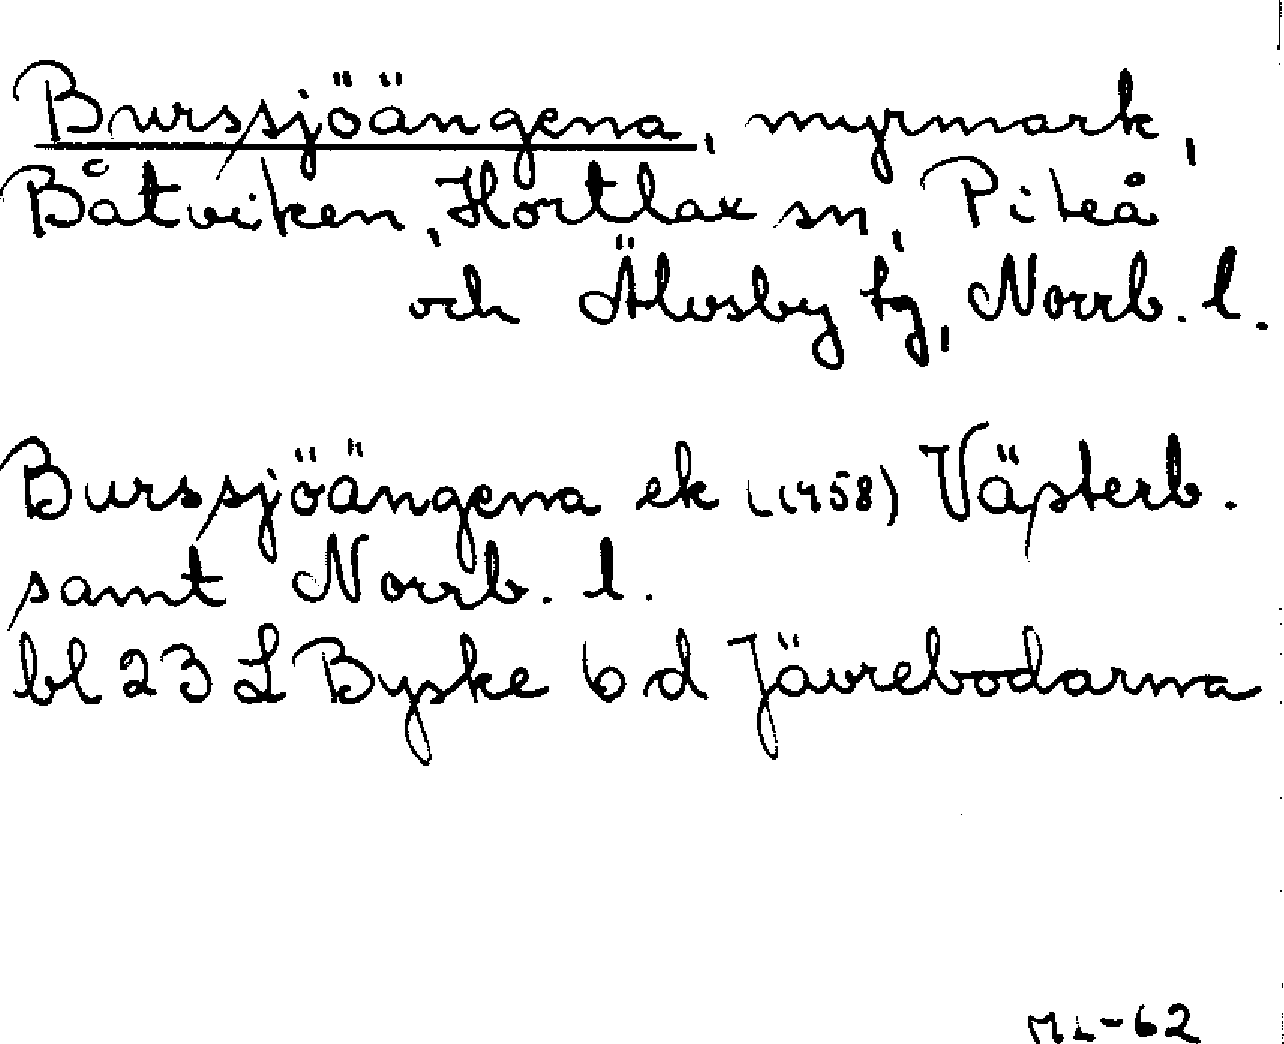 Burssjöängena, myrmark,
Båtviken, Hortlax sn, Piteå
och Älvsby tg, Norrb. l.
Burssjöängena ek (1958) Västerb.
samt Norrb. l.
bl 23 L Byske 6 d Jävrebodarna
ML-62